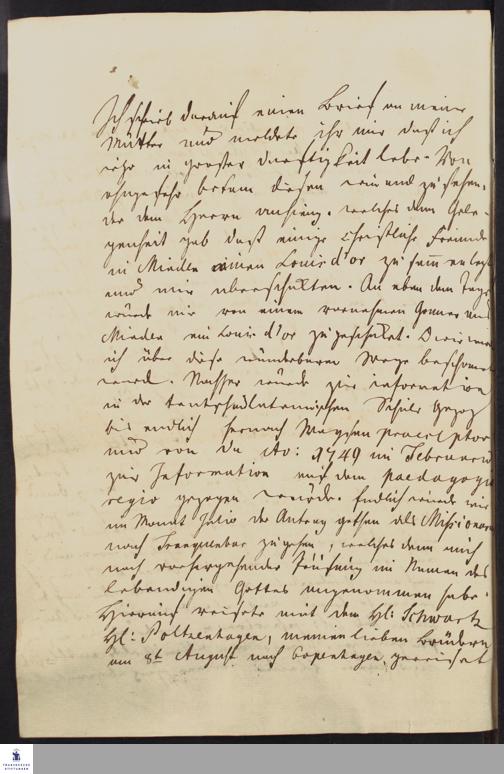 Ich schrieb darauf einen Brief an meine
Mutter und meldete ihr nur daß ich
sehr in grosser Dürftigkeit lebe. Von
ohngefehr bekam diesen jemand zu sehen,
der dem Herrn anhieng. welches dann Gele-
genheit gab daß einige christliche Freunde
in Minden einen Louis d'or zu samen legten
und mir überschickten. An eben dem Tage
wurde mir von einem vornehmen Gönner aus
Minden ein Louis d'or zugeschickt. Da nun
ich über diese wunderbaren Wege beschämt
wurde. Nachher wurde zur information
in der Schule gezog
bis endlich hernach Waysen praeceptor
und von da Ao: 1749 im Februario
zur Information auf dem Paedagogio
regio gezogen wurde. Endlich wurde mir
im Monat Julio der Antrag gethan als Missionari
nach Tranquebar zu gehen, welches denn auch
nach vorhergehender Prüfung im Namen des
lebendigen Gottes angenommen habe.
Hierauf reisete mit dem HE: Schwartz
HE: Poltzenhagen, meinen lieben Brüdern
am 8t August nach Copenhagen, gereiset
FRANCKESCHE
STIFTUNGEN